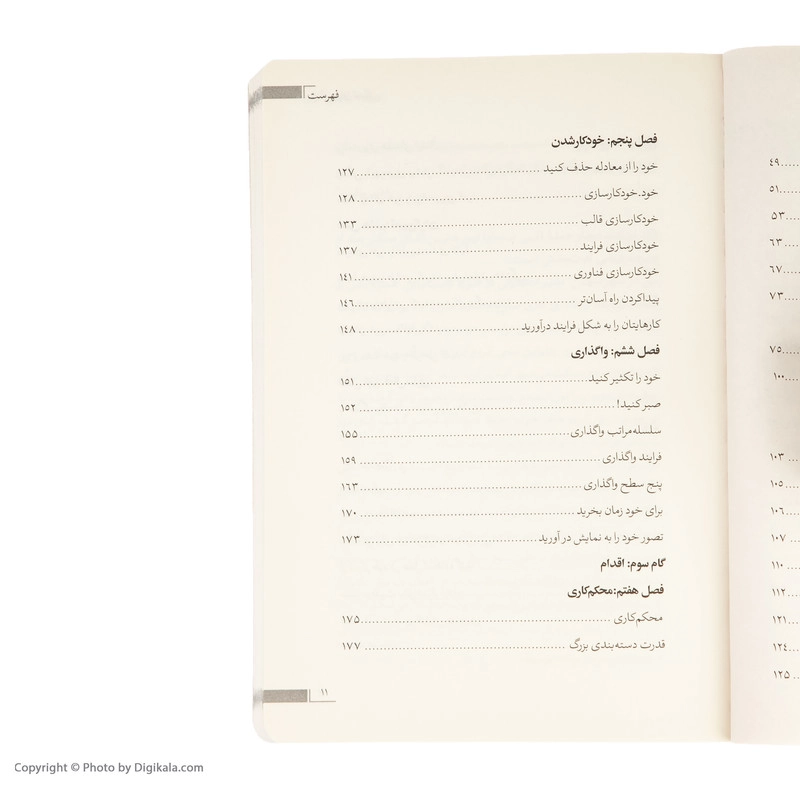 فهرست
فصل پنجم: خودکارشدن
خود را از معادله حذف کنید ........ ۱۲۷
خود.خودکارسازی ........ ۱۲۸
خودکارسازی قالب ........ ۱۳۳
خودکارسازی فرایند ........ ۱۳۷
خودکارسازی فناوری ........ ۱۴۱
پیداکردن راه آسان‌تر ........ ۱۴۶
کارهایتان را به شکل فرایند درآورید ........ ۱۴۸
فصل ششم: واگذاری
خود را تکثیر کنید ........ ۱۵۱
صبر کنید! ........ ۱۵۲
سلسله‌مراتب واگذاری ........ ۱۵۵
فرایند واگذاری ........ ۱۵۹
پنج سطح واگذاری ........ ۱۶۳
برای خود زمان بخرید ........ ۱۷۰
تصور خود را به نمایش در آورید ........ ۱۷۳
گام سوم: اقدام
فصل هفتم:محکم‌کاری
محکم‌کاری ........ ۱۷۵
قدرت دسته‌بندی بزرگ ........ ۱۷۷
۱۱
۴۹
۵۱
۵۳
۶۳
۶۷
۷۳
۷۵
۱۰۰
۱۰۳
۱۰۵
۱۰۶
۱۰۷
۱۱۰
۱۱۲
۱۲۱
۱۲۴
۱۲۵
Copyright © Photo by Digikala.com